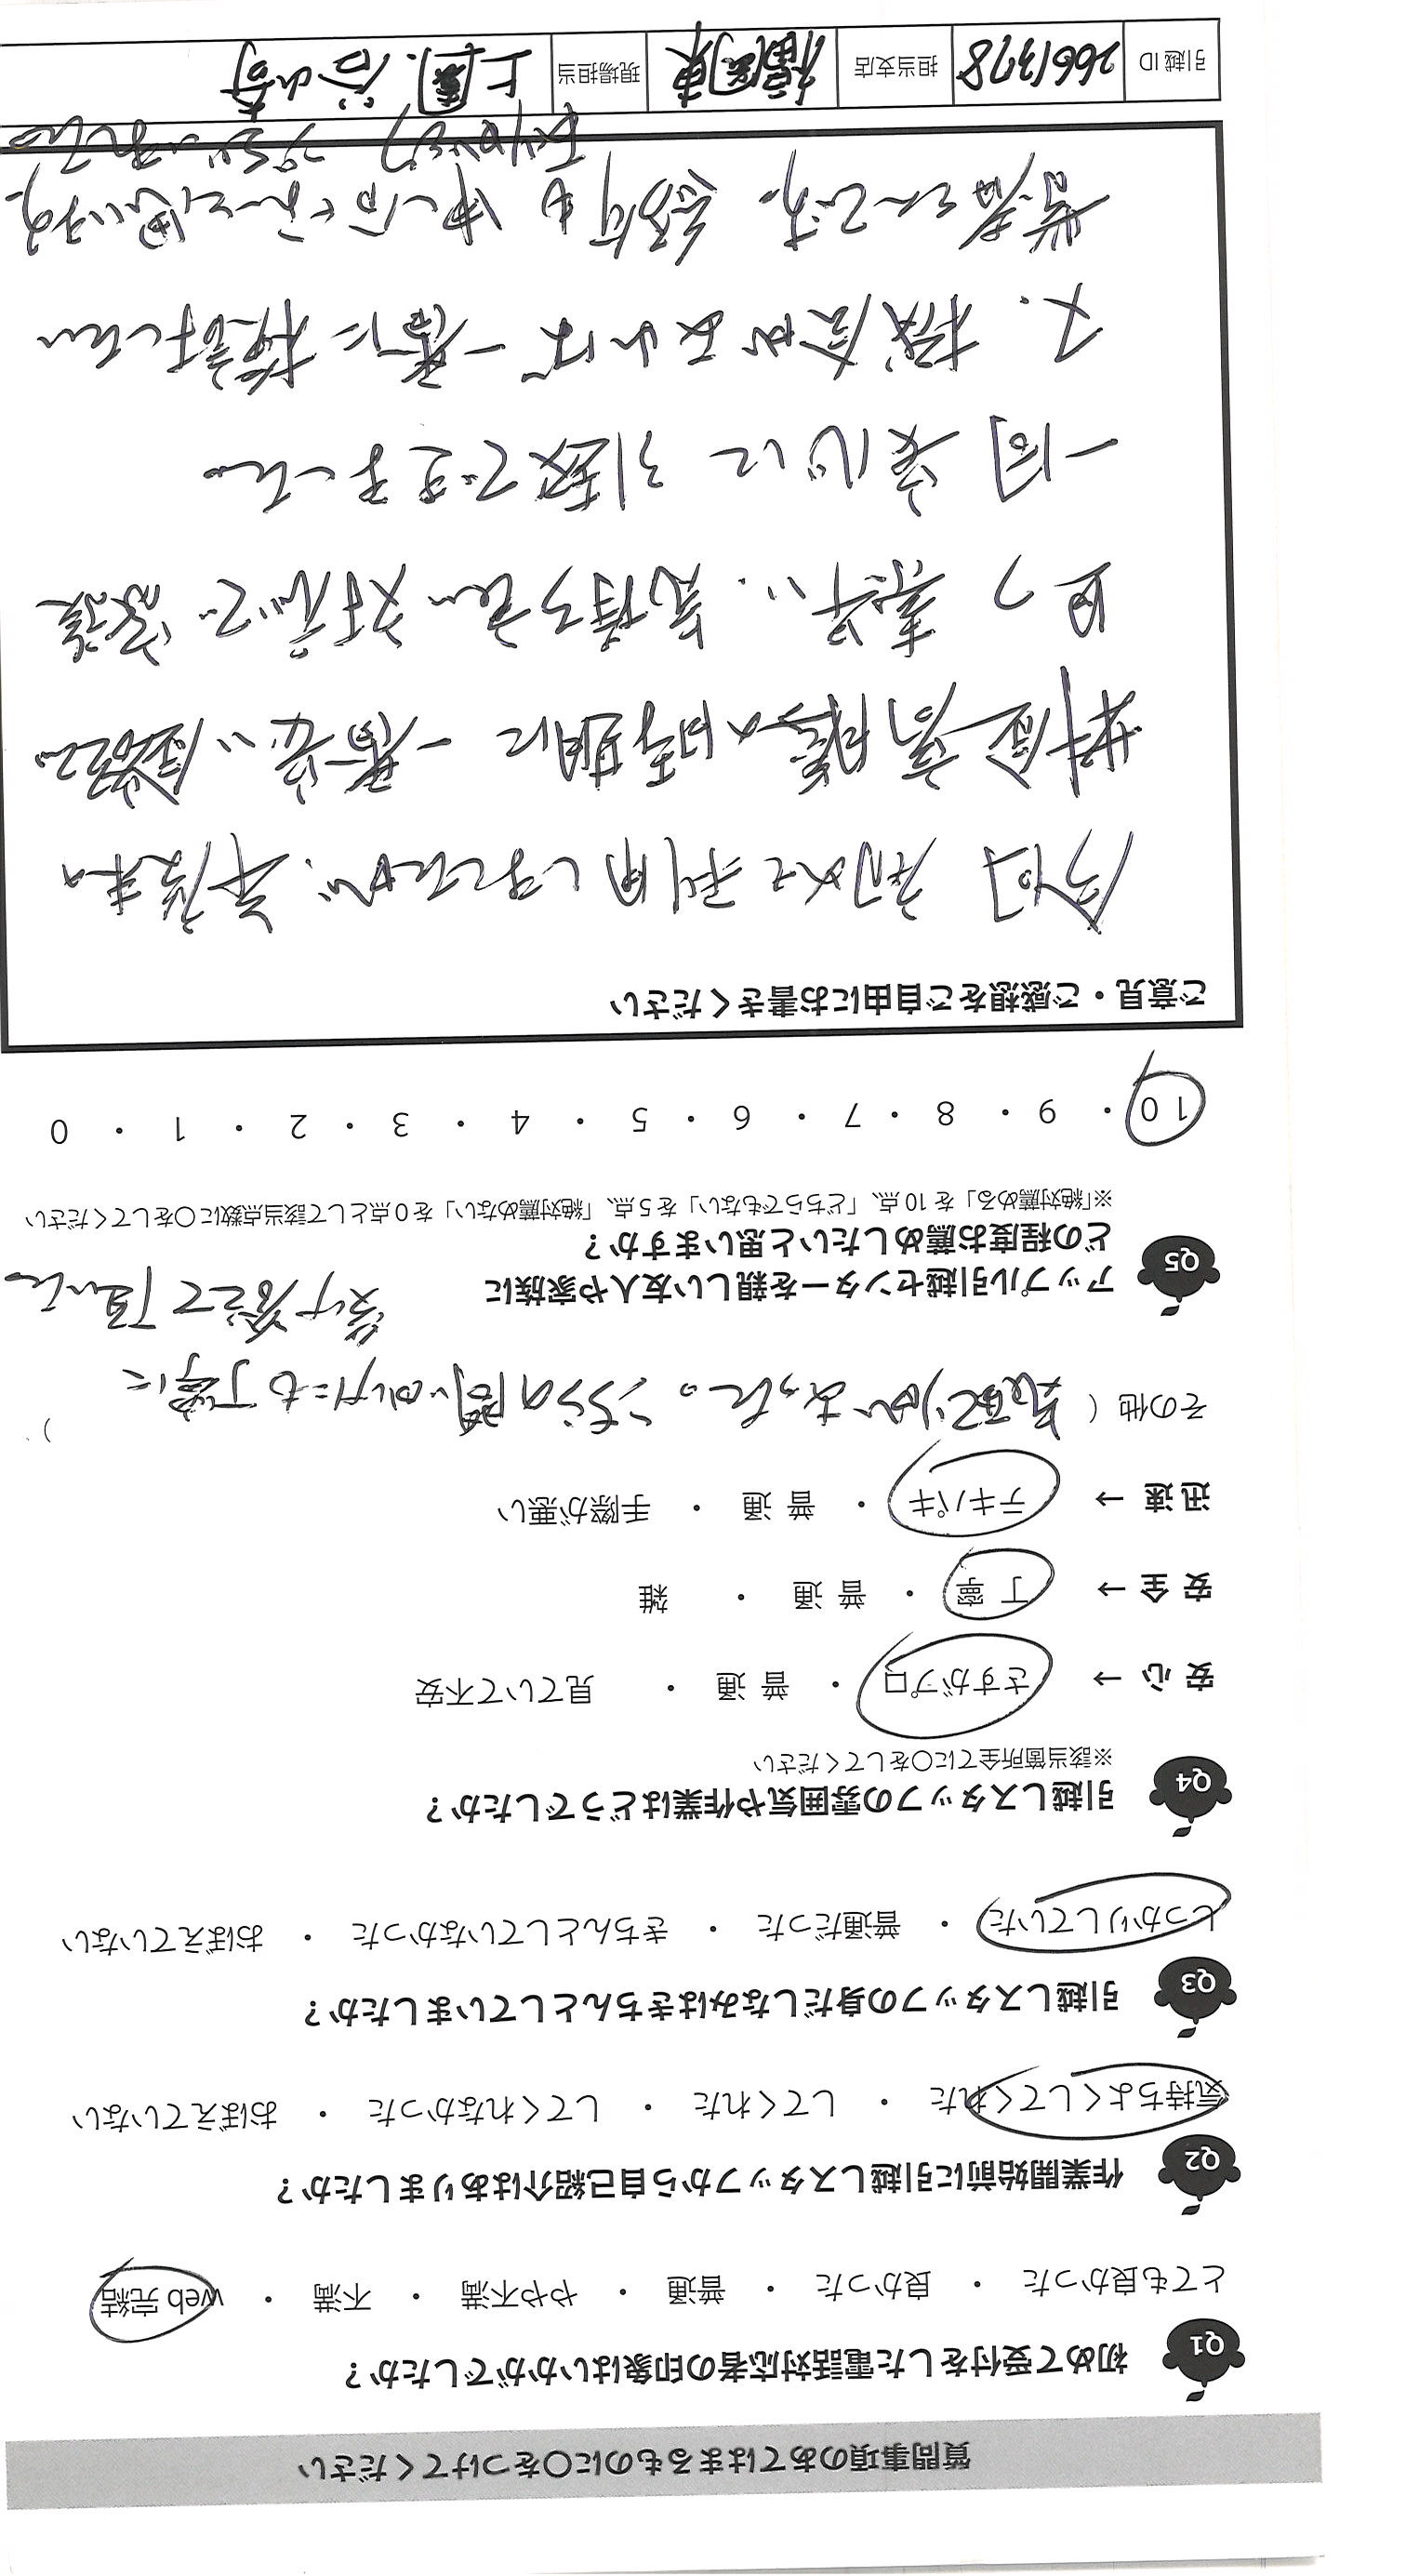 質問事項のあてはまるものに○をつけてください
Q1 初めて受付をした電話対応者の印象はいかがでしたか？
とても良かった ・ 良かった ・ 普通 ・ やや不満 ・ 不満 ・ web完結
Q2 作業開始前に引越しスタッフから自己紹介はありましたか？
気持ちよくしてくれた ・ してくれた ・ してくれなかった ・ おぼえていない
Q3 引越しスタッフの身だしなみはきちんとしていましたか？
しっかりしていた ・ 普通だった ・ きちんとしていなかった ・ おぼえていない
Q4 引越しスタッフの雰囲気や作業はどうでしたか？
※該当箇所全てに○をしてください
安心 → さすがプロ ・ 普通 ・ 見ていて不安
安全 → 丁寧 ・ 普通 ・ 雑
迅速 → テキパキ ・ 普通 ・ 手際が悪い
その他 ( 気配りがあった。こちらの問いかけにも丁寧に )
答えて頂いた
Q5 アップル引越センターを親しい友人や家族に
どの程度お薦めしたいと思いますか？
※「絶対薦める」を10点、「どちらでもない」を5点、「絶対薦めない」を0点として該当点数に○をしてください
10 ・ 9 ・ 8 ・ 7 ・ 6 ・ 5 ・ 4 ・ 3 ・ 2 ・ 1 ・ 0
ご意見・ご感想をご自由にお書きください
今回初めて利用しましたが、年度末の
料金高騰の時期に一番安い金額
且つ素早い、気持ちよい対応で家族
一同安心に引越できました。
又、機会があれば一番に検討したい
業者さんです。
引越ID 2661378 担当支店 福岡東 現場担当 上薗、谷山